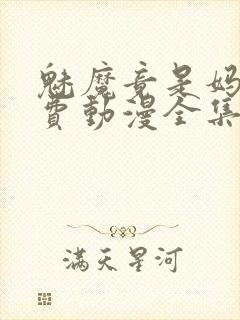 魅魔竟是妈
费动漫全集
满天星河